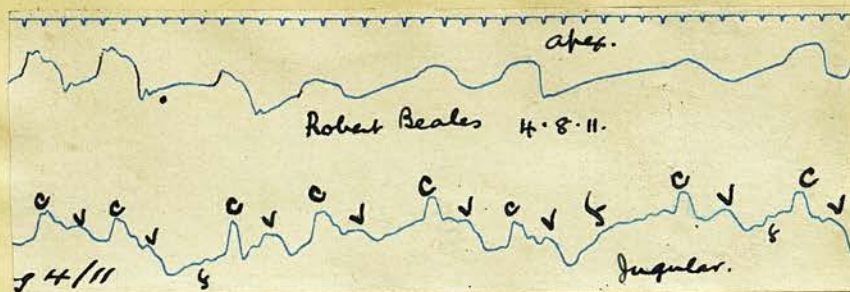 apex.
Robert Beales 4·8·11.
c v c v c v c v c v c v c v c v
4/11
Jugular.